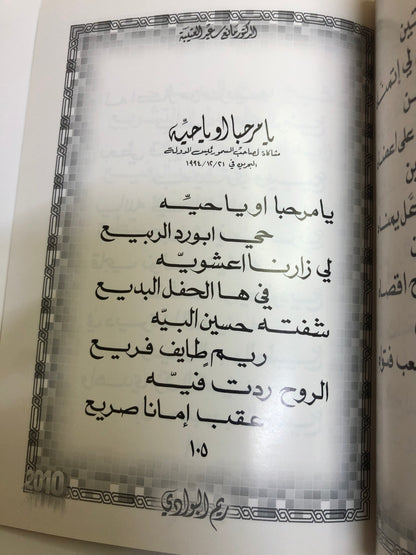 الدكتور مانع سعيد العتيبة
يا مرحبا او يا حيّه
مشاكاة لصاحب السمو رئيس الدولة
البحرين في ١٩٩٤/١٢/٢١
يا مرحبا او يا حيّه
حي ابورد الربيع
لي زارنا اعشويّه
في ها الحفل البديع
شفته حسين البيّه
ريم طايف فريع
الروح ردت فيّه
عقب إمانا صريع
١٠٥
2010
ريم البوادي